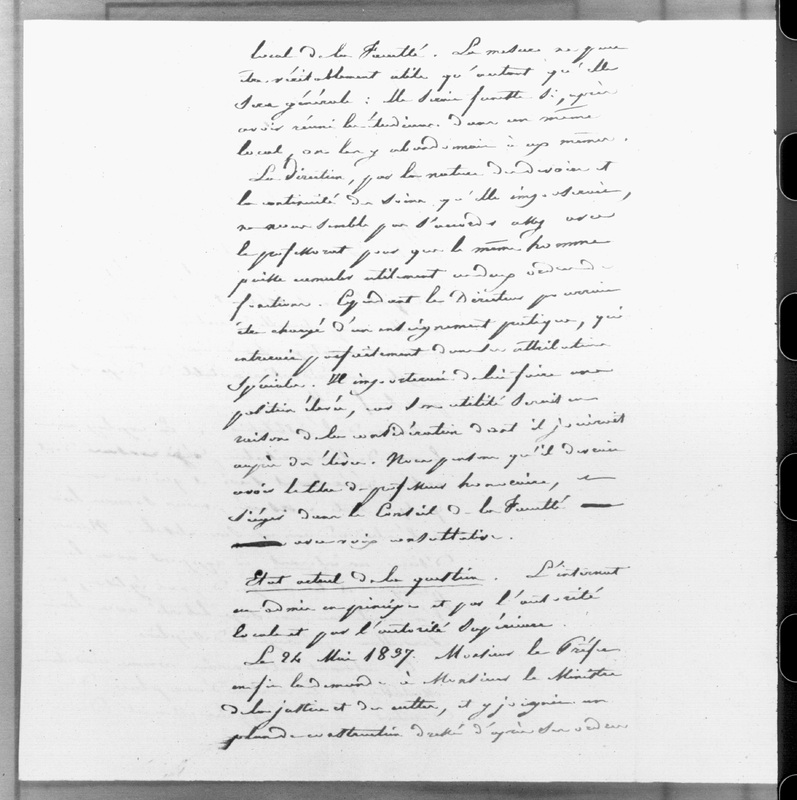 local de la Faculté. La mesure ne peut
être véritablement utile qu'autant qu'elle
sera générale : elle serait funeste si, après
avoir réuni les étudians dans un même
local, on les y abandonnait à eux mêmes.
La Direction, par la nature des devoirs et
la continuité des soins qu'elle imposerait,
ne nous semble pas s'accorder assez avec
le professorat pour que le même homme
puisse cumuler utilement ces deux ordres de
fonctions. Cependant le Directeur pourrait
être chargé d'un enseignement pratique, qui
entrerait parfaitement dans ses attributions
spéciales. Il importerait de lui faire une
position élevée, car son utilité serait en
raison de la considération dont il jouirait
auprès des élèves. Nous pensons qu'il devrait
avoir le titre de professeur honoraire, et
siéger dans le Conseil de la Faculté
avec voix consultative.
Etat actuel de la question. L'internat
est admis en principe et par l'autorité
locale et par l'autorité supérieure.
Le 24 Mai 1837. Monsieur le Préfet
en fit la demande à Monsieur le Ministre
de la justice et des cultes, et y joignit un
plan de construction dressé d'après ses ordres